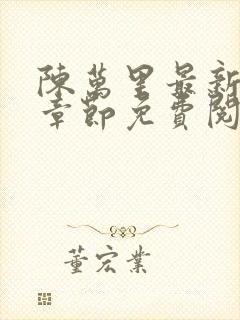 陳萬里最新
章節免費閱
董宏業